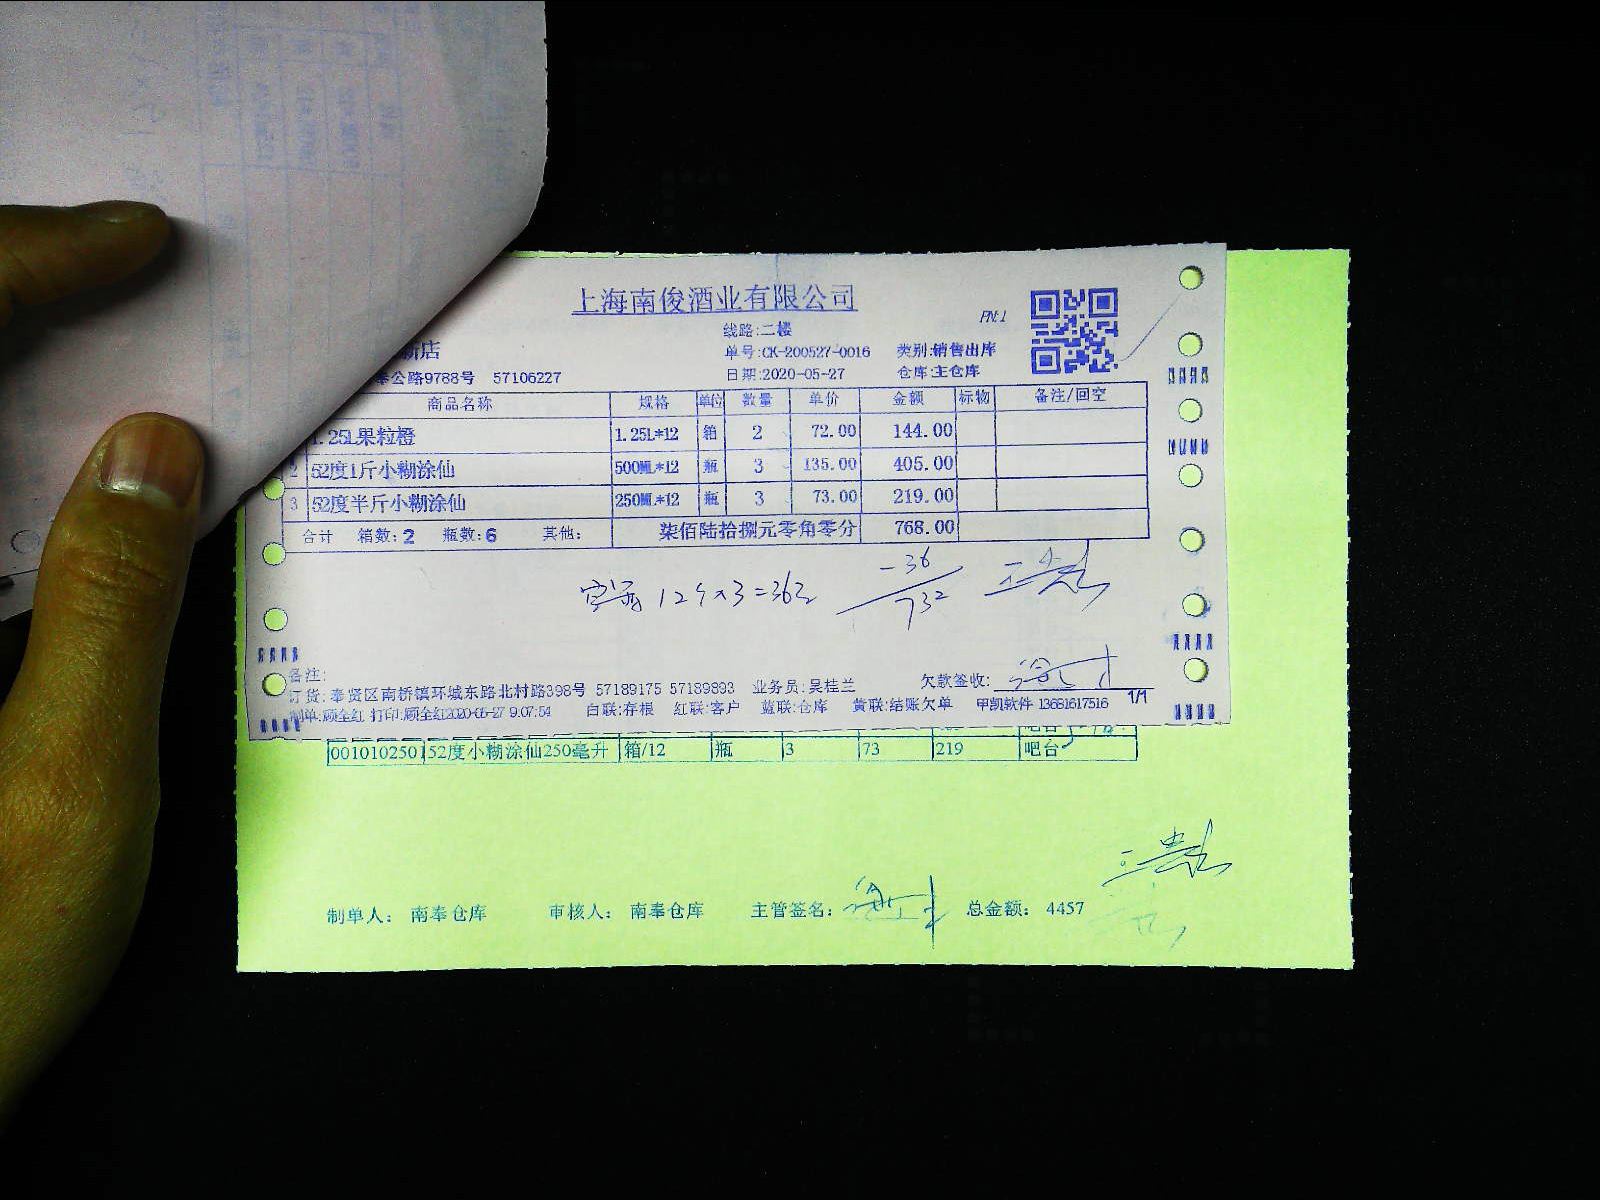 上海南俊酒业有限公司
PN:1
线路:二楼
新店 单号:CK-200527-0016 类别:销售出库
奉公路9788号 57106227 日期:2020-05-27 仓库:主仓库
商品名称 规格 单位 数量 单价 金额 标物 备注/回空
1.25L果粒橙 1.25L*12 箱 2 72.00 144.00
2 52度1斤小糊涂仙 500ML*12 瓶 3 135.00 405.00
3 52度半斤小糊涂仙 250ML*12 瓶 3 73.00 219.00
合计 箱数:2 瓶数:6 其他: 柒佰陆拾捌元零角零分 768.00
12个×3=36元 -36
732
备注:
订货:奉贤区南桥镇环城东路北村路398号 57189175 57189893 业务员:吴桂兰 欠款签收:
制单:顾全红 打印:顾全红2020-05-27 9:07:54 白联:存根 红联:客户 蓝联:仓库 黄联:结账欠单 甲凯软件 13681617516 1/1
001010250 52度小糊涂仙250毫升 箱/12 瓶 3 73 219 吧台
制单人: 南奉仓库 审核人: 南奉仓库 主管签名: 总金额: 4457